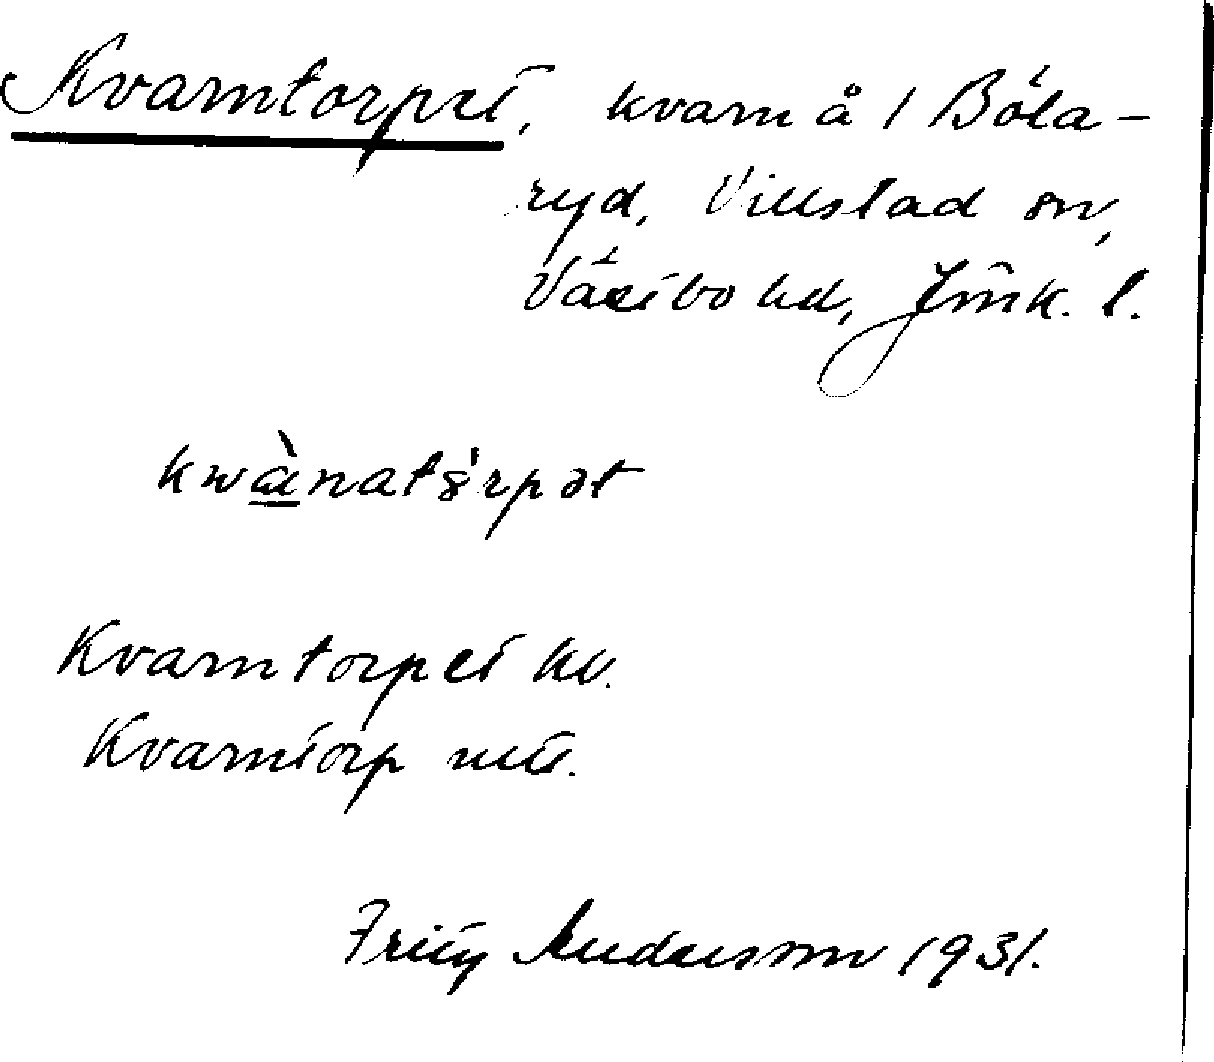 Kvarntorpet, kvarn å 1 Böla-
ryd, Villstad sn,
Västbo hd, Jmk. l.
kwànatórpət
Kvarntorpet hd.
Kvarntorp
Fritz Andersson 1931.